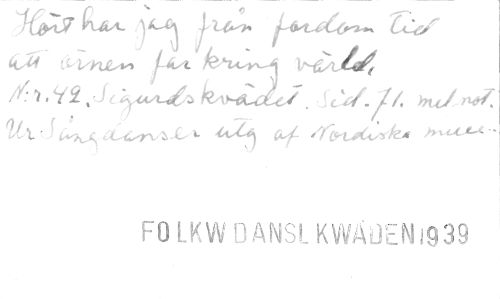 Hört har jag från fordom tid
att örnen far kring värld.
N:r. 42. Sigurdskvädet. Sid. 71. mel. not.
Ur Sångdanser utg af Nordiska muse-
FOLKW DANSL KWÄDEN 1939